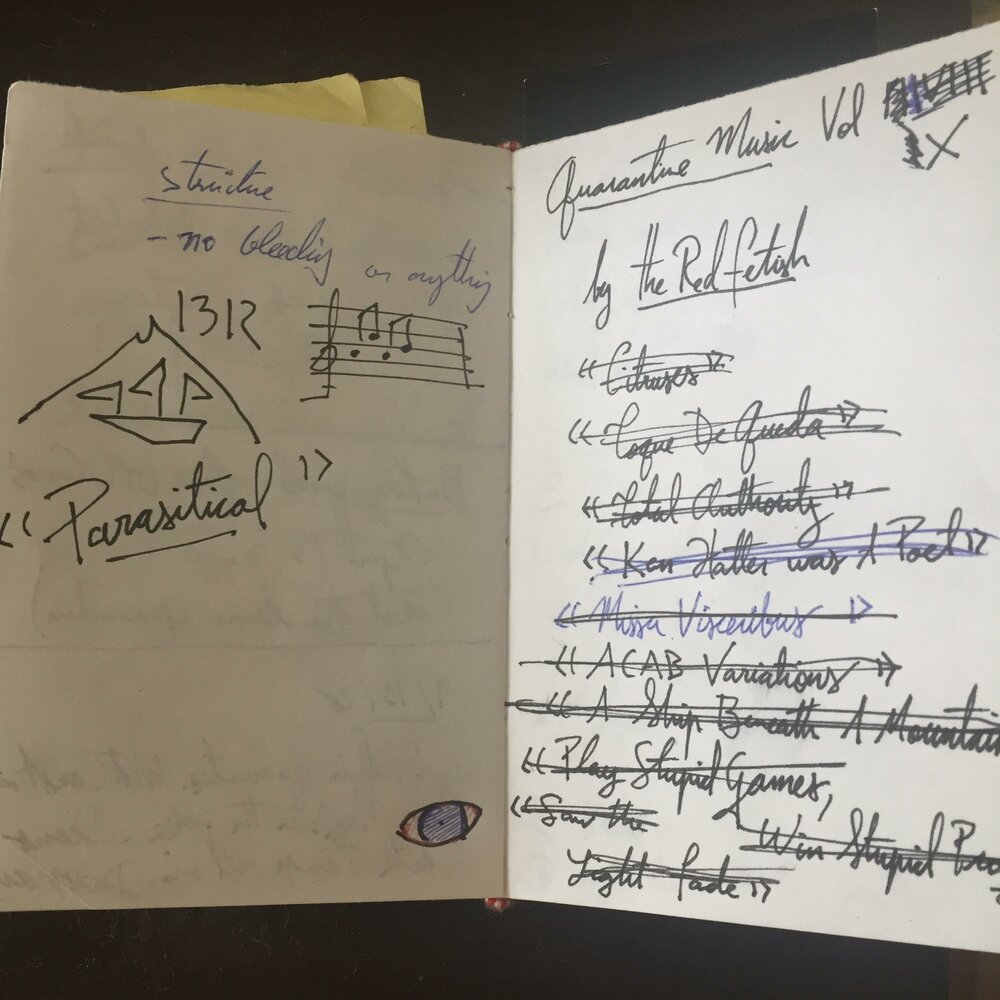 structure
- no bleeding or anything
1312
« Parasitical »
Quarantine Music Vol
X
by the Red fetish
« Citruses »
« Toque De Queda »
« Total Authority »
« Ken Hatter was A Poet »
« Missa Visceribus »
« ACAB Variations »
« A Ship Beneath A Mountain
« Play Stupid Games,
Win Stupid
« Saw the
Light fade »